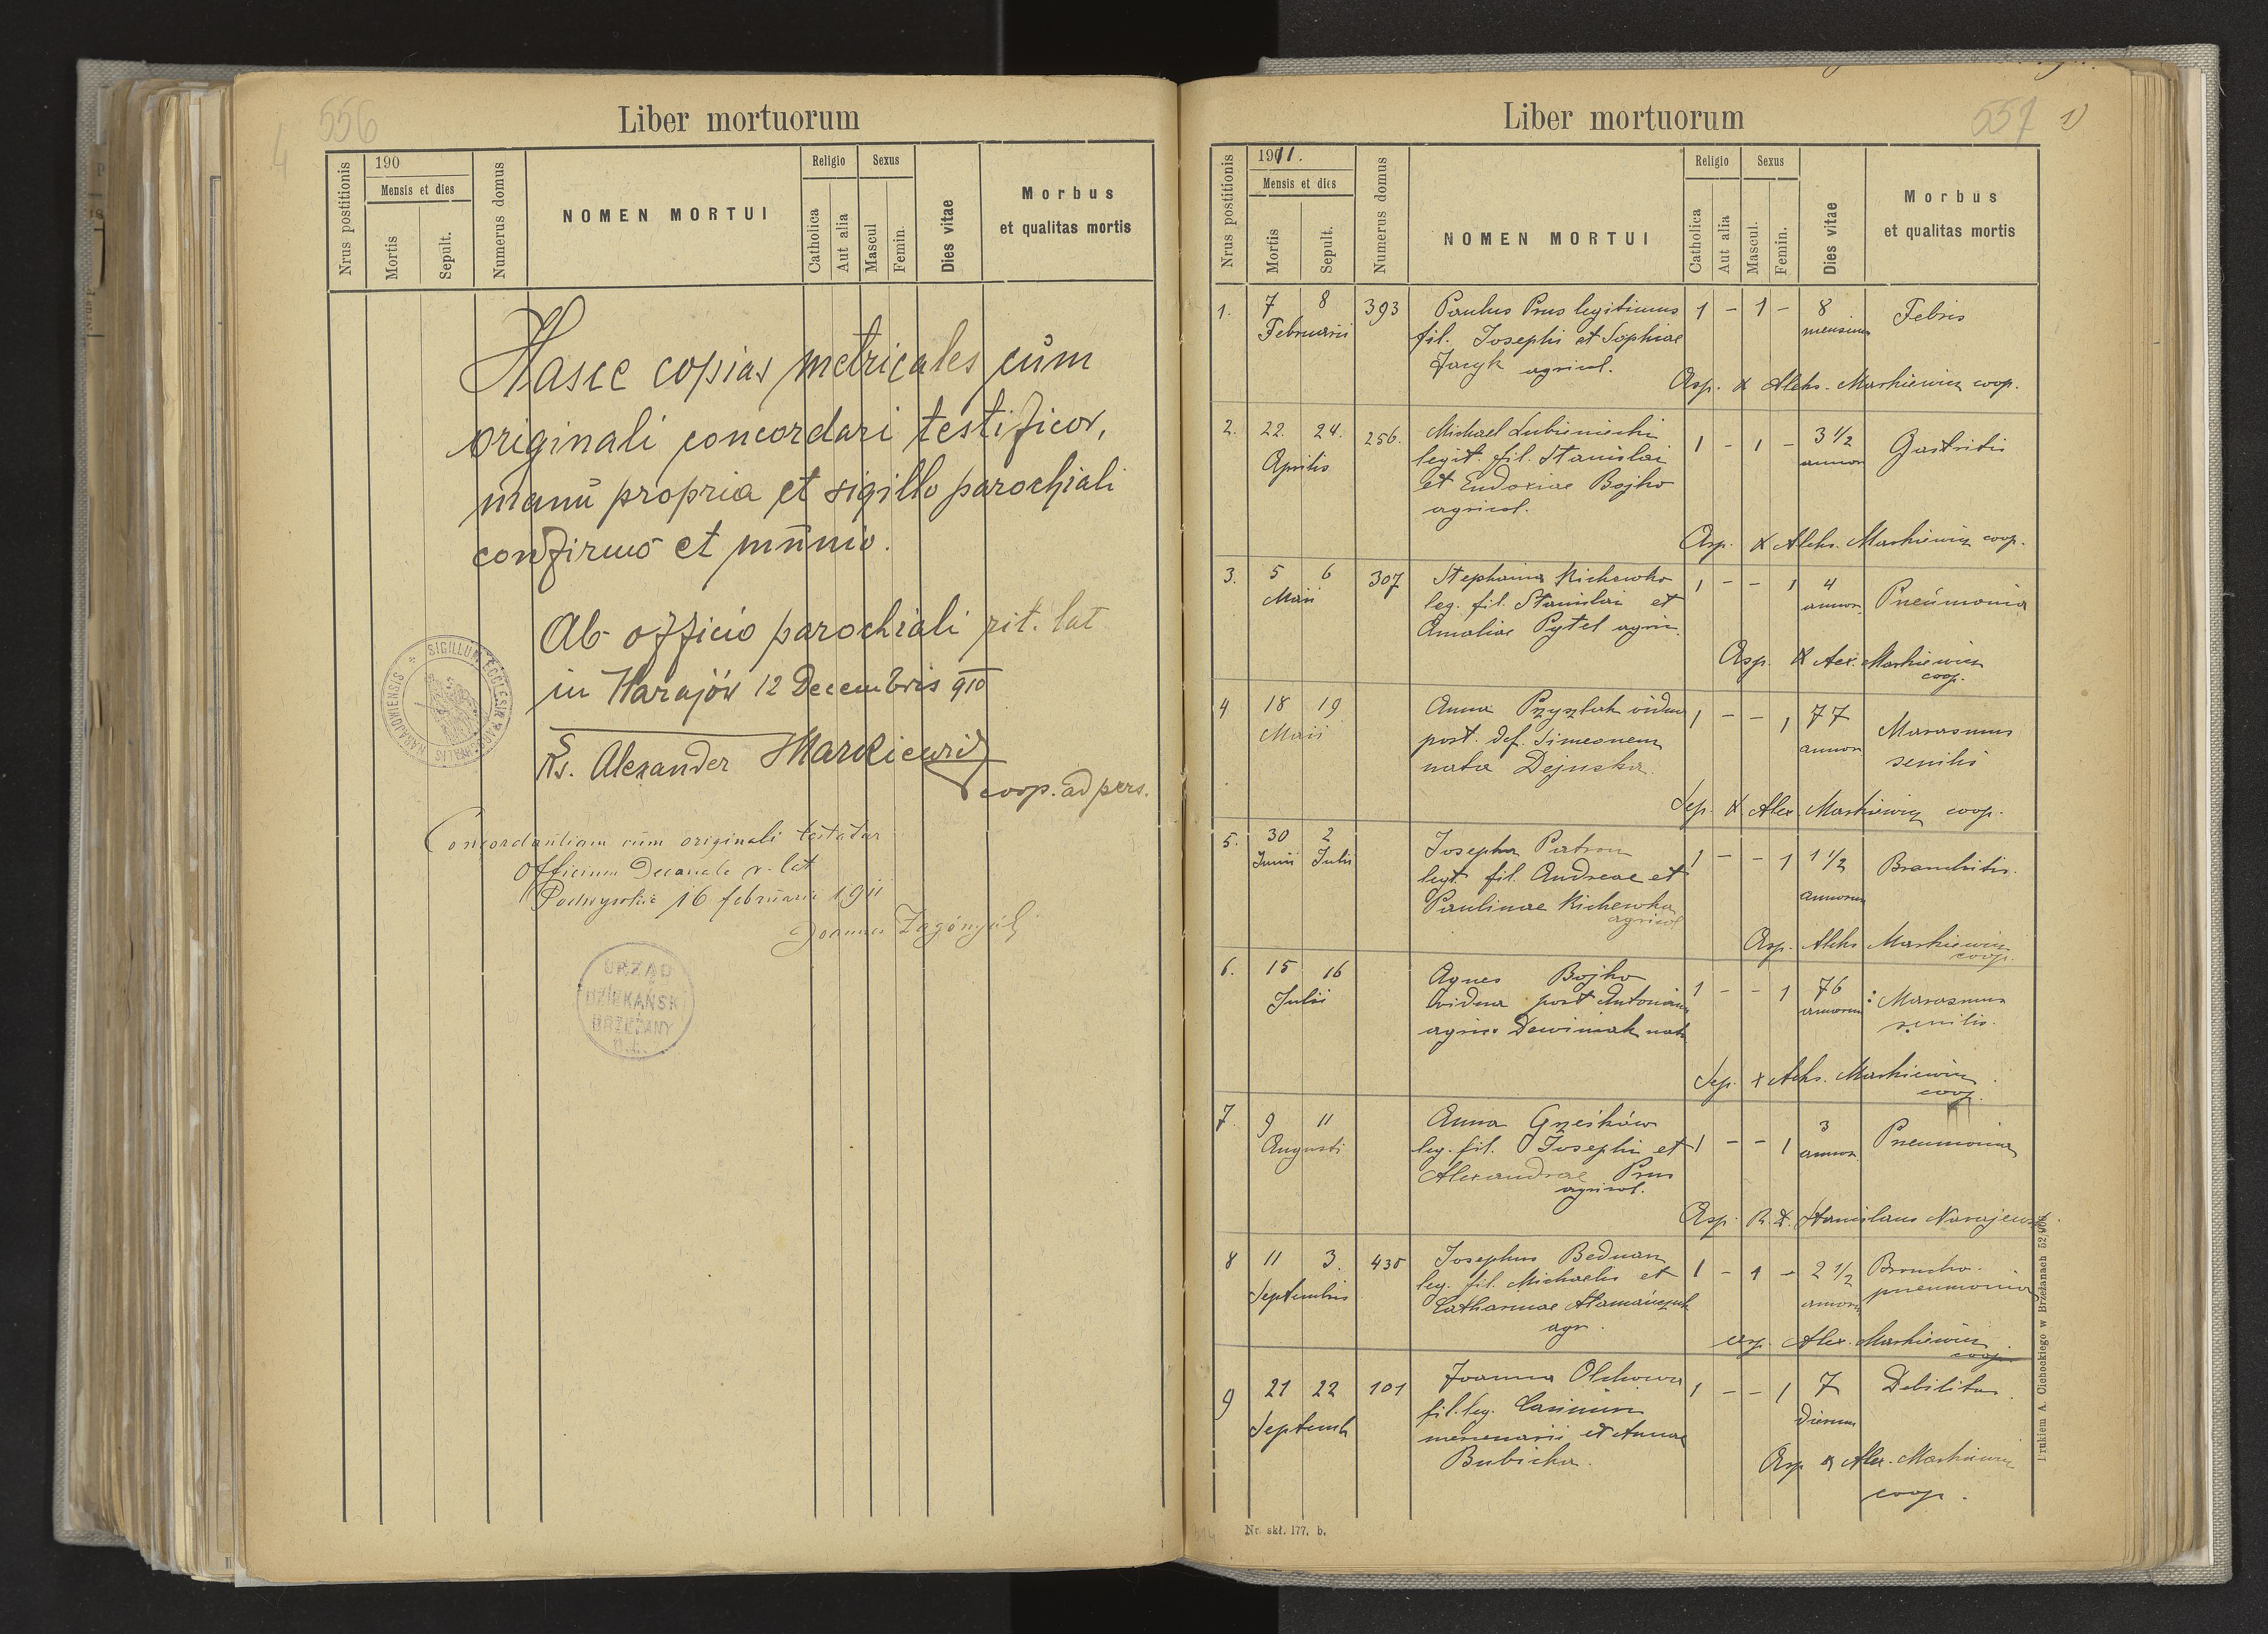 556
4
Liber mortuorum
Nrus postitionis
190
Mensis et dies
Mortis
Sepult.
Numerus domus
NOMEN MORTUI
Religio
Catholica
Aut alia
Sexus
Mascul
Femin.
Dies vitae
Morbus
et qualitas mortis
Hasce copias metricales cum
originali concordari testificor,
manu propria et sigillo parochiali
confirmo et munio.
Ab officio parochiali rit. lat
in Narajów 12 Decembris 910
SIGILLUM ECCLESIAE PAROCHIALIS NARAJOWIENSIS
Alexander Markiewicz
coop. ad pers.
Concordantiam cum originali testatur
Officium Decanale r. lat
16 februarii 1911
Joannes
URZĄD
DZIEKAŃSKI
BRZEŻANY
Liber mortuorum
557
1)
Nrus postitionis
1911.
Mensis et dies
Mortis
Sepult.
Numerus domus
NOMEN MORTUI
Religio
Catholica
Aut alia
Sexus
Mascul.
Femin.
Dies vitae
Morbus
et qualitas mortis
1. 7 8 393 Paulus Prus legitimus 1 - 1 - 8 Febris
Februarii fil. Josephi et Sophiae mensium
Jacyk agricol.
Asp. X Aleks. Markiewicz coop.
2. 22. 24. 256. Michael Lubieniecki 1 - 1 - 3 1/2 Gastritis
Aprilis legit. fil. Stanislai annor
et Eudoxiae Bojko
agricol.
Asp. X Aleks. Markiewicz coop.
3. 5 6 307 Stephania Kichewko 1 - - 1 4 Pneumonia
Maii leg. fil. Stanislai et annor
Amaliae Pytel agric.
Asp. X Alex. Markiewicz
coop.
4 18 19 Anna Przyszlak vidua 1 - - 1 77 Marasmus
Maii post. def. Simeonem annor senilis
nata Dejneka.
Sep. X Alex Markiewicz coop.
5. 30 2 Josepha Patron 1 - - 1 1 1/2 Bronchitis.
Junii Julii legt fil. Andreae et annorum
Paulinae Kichewka
agricol
Asp. Aleks Markiewicz
coop.
6. 15 16 Agnes Bojko 1 - - 1 76 Marasmus
Julii vidua post Antonium annorum senilis.
agric. Dewiniak nata
Sep. X Aleks. Markiewicz
coop.
7. 9 11 Anna Grześków 1 - - 1 3 Pneumonia
Augusti leg. fil. Josephi et annor.
Alexandrae Prus
agricol.
Asp. R. X. Stanislaus
8 11 3. 435 Josephus Bednarz 1 - 1 - 2 1/2 Broncho-
Septembris leg. fil. Michaelis et annor. pneumonia
Catharinae Atamańczuk
agr.
asp. Alex. Markiewicz
coop
9 21 22 101 Joanna Olchowa 1 - - 1 7 Debilitas
Septemb fil. leg. Casimiri dierum
mercenarii et Annae
Bubicka.
Asp X Alex. Markiewicz
coop.
Nr. skł. 177. b.
Drukiem A. Cichockiego w Brzeżanach